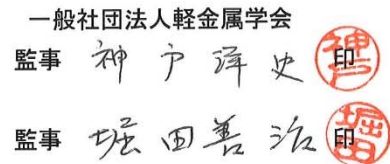 一般社団法人軽金属学会
監事 神戸洋史 印 神戸
監事 堀田善治 印 堀田